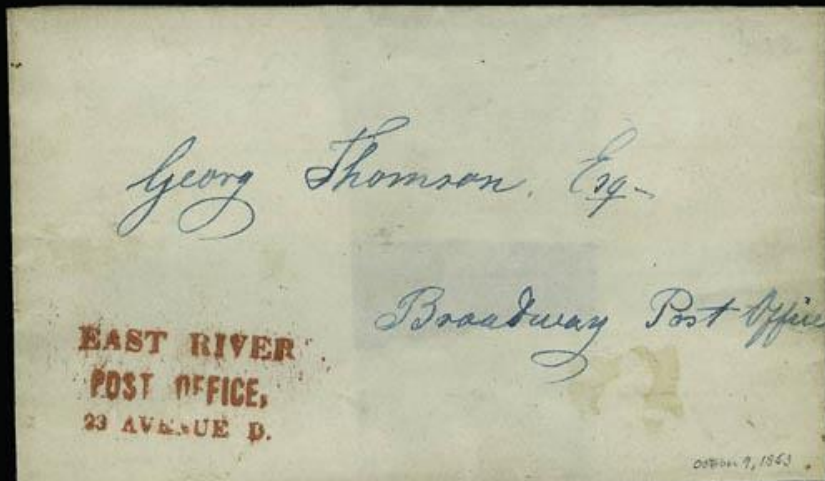 Georg Thomson. Esq-
Broadway Post Office
EAST RIVER
POST OFFICE,
23 AVENUE D.